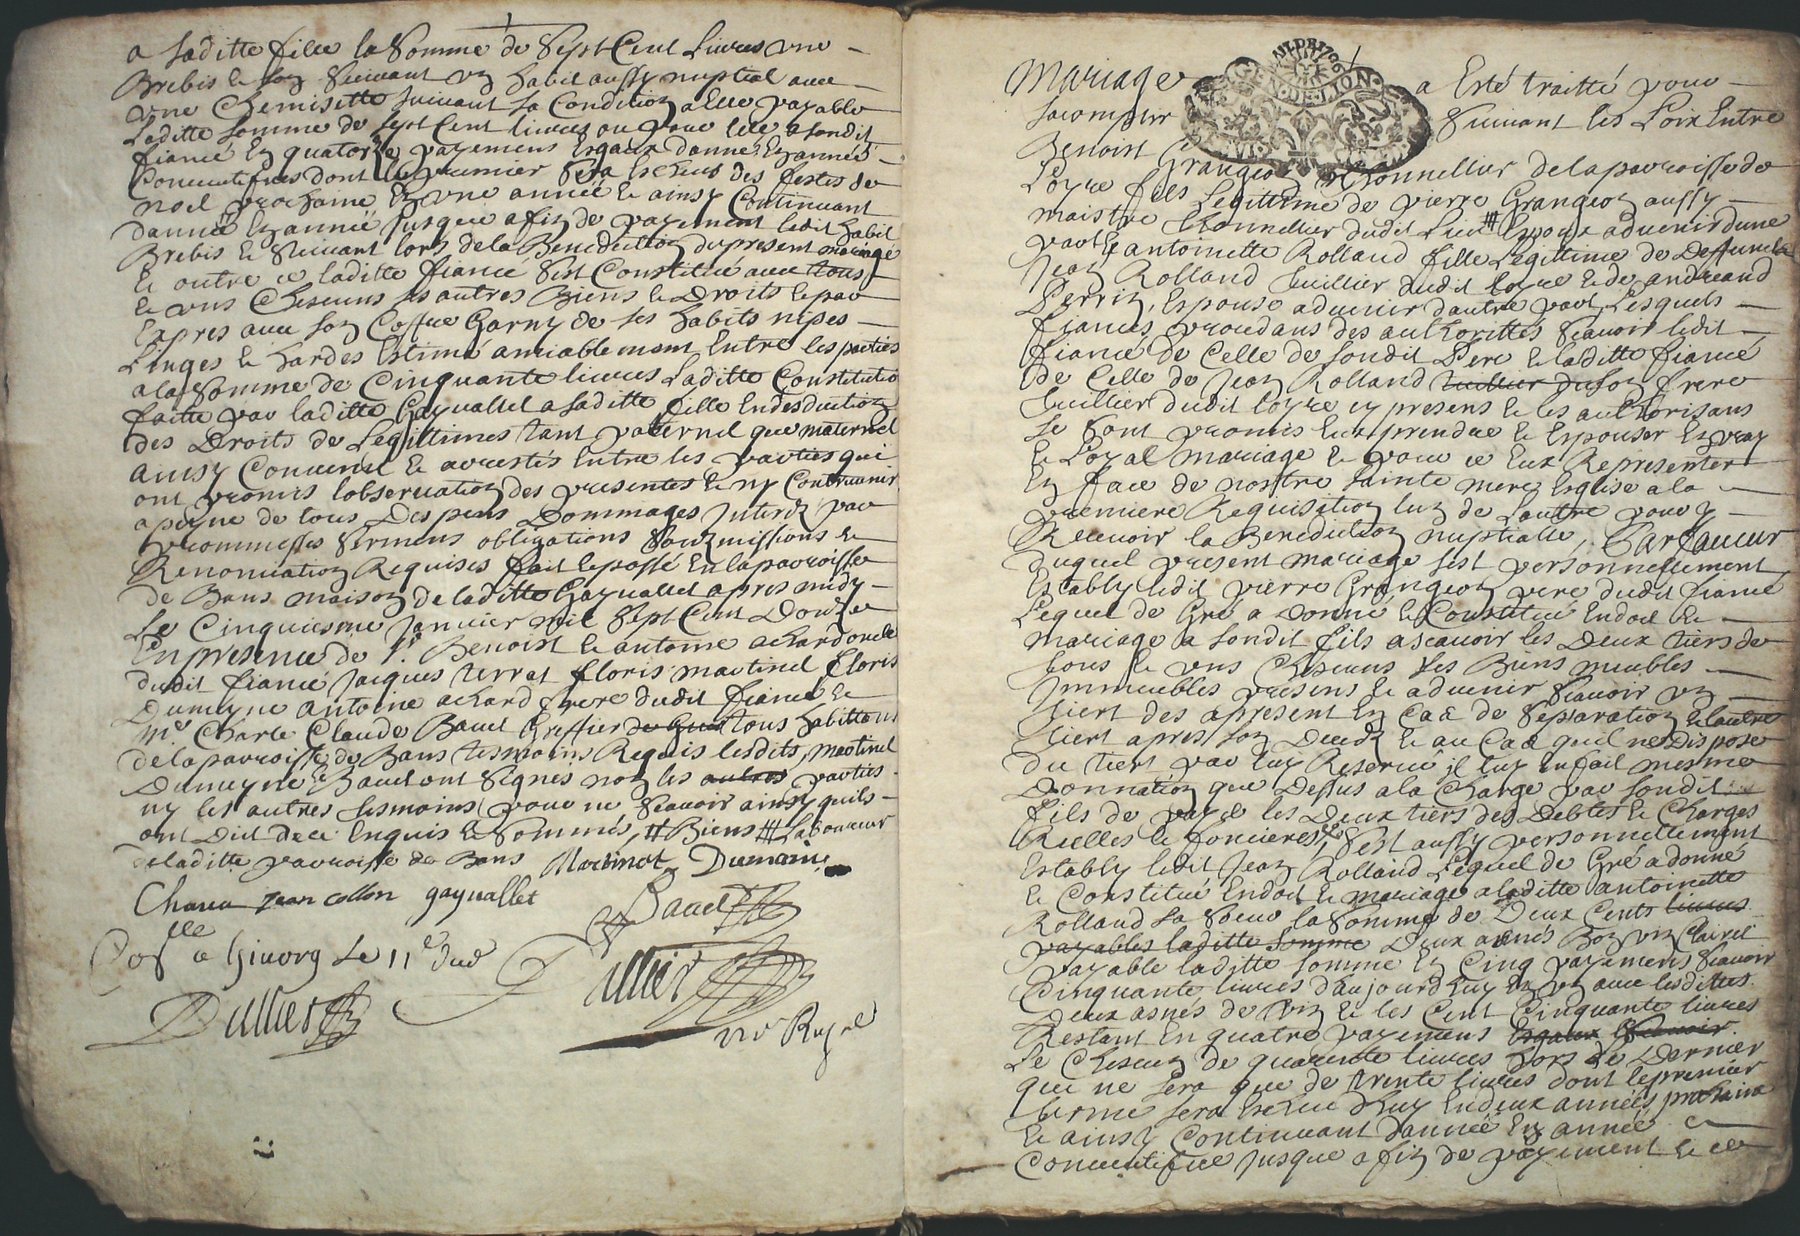 a saditte fille la Somme de Sept Cent Livres une
Brebis le Suivant un habit aussy nuptial avec
une Chemisette suivant sa Condition a Elle payable
Laditte Somme de sept Cent livres ou pour Elle a sondit
fiancé En quatorze payemens Esgaux dannée En année
Consecutifves dont le premier Sera Escheus des festes de
noel prochaine En une année & ainsy Continuant
dannée En année Jusques a fin de payement ledit habit
Brebis & Suivant lors de la Benediction du present mariage
Et outre ce laditte fiancé sest Constitué avec tous
& uns Chescuns ses autres Biens & Droits & par
Expres avec son Coffre Garny de ses habits nipes
Linges & hardes Estimé amiablement Entre les parties
a la Somme de Cinquante livres Laditte Constitution
faitte par laditte Gayuallet a saditte fille En desduction
des Droits de Legittimes tant paternel que maternel
ainsy Convenu & arrestés Entre les parties qui
ont promis lobservation des presentes & ny Contrevenir
a peyne de tous Despens Dommages Interetz par
promesses Sermens obligations Soubzmissions &
Renonciation Requises fait & passé En la parroisse
de Bans maison de laditte Gayuallet apres midy
Le Cinquiesme Janvier mil Sept Cent Douze
En presence de Sr. Benoist & antoine achard oncle
dudit fiancé Jacques terrat floris martinet floris
Dumeyne antoine achard frere dudit fiancé &
Me Charle Claude Bauet Greffier tous habittans
de la parroisse de Bans tesmoins Requis lesdits martinet
Dumeyne & Bauet ont Signés non les autres parties
ny les autres tesmoins pour ne Scavoir ainsy quils
ont Dit de ce Enquis & Sommés # Biens # Laboureur
de laditte parroisse de Bans Martinet Dumaine
Jean collon gayuallet
Bauet
a Givors Le 11e dud
Dullier
Dullier
nore Royal
Mariage a Esté traitté pour
sacomplir Suivant les Loix Entre
Benoist Grangeon thonnellier de la parroisse de
Loyre fils Legittime de pierre Grangeon aussy
maistre thonnellier dudit Lieu # Espoux advenir dune
part & antoinette Rolland fille Legittime de Deffunct
Jean Rolland tuillier dudit loyre & de andreand
Perrin, Espouse advenir dautre part Lesquels
fiancés procedans des authorittés Scavoir ledit
fiancé de Celle de sondit Pere & laditte fiancé
de Celle de Jean Rolland tuillier du son frere
tuillier dudit loyre cy presens & les authorisans
se Sont promis Eux prendre & Espouser En vray
& Loyal mariage & pour ce Eux Representer
En face de nostre sainte mere Esglise a la
premiere Requisition lun de Lautre pour y
Recevoir la Benediction nuptialle, En faveur
duquel present mariage sest personnellement
Estably ledit pierre Grangeon pere dudit fiancé
Lequel de Gré a Donné & Constitué En dot &
mariage a sondit fils ascavoir les Deux tiers de
tous & uns Chescuns Ses Biens meubles
Immeubles presens & advenir Scavoir un
tiert des apresent En Cas de Separation & lautre
tiert apres son Decedz & au Cas quil ne Dispose
du tiert par luy Reservé, il luy en fait mesme
Donnation que Dessus a la Charge par sondit
fils de payer les Deux tiers des Debtes & Charges
Rielles & foncieres, Sest aussy personnellement
Estably ledit Jean Rolland Lequel de Gré a donné
& Constitué En dot & mariage a laditte antoinette
Rolland sa Soeur la Somme de Deux Cents livres
payables laditte Somme Deux asnés Bon vin Clairet
payable laditte somme En Cinq payemens Scavoir
Cinquante livres d'aujourdhuy En un avec lesdittes
Deux asnés de vin & les Cent Cinquante livres
Restant En quatre payemens Esgaux Scavoir
Le Chescun de quarente livres hors le Dernier
qui ne sera que de trente livres dont le premier
terme sera Escheu dhuy En deux années prochaine
& ainsy Continuant dannée En année
Consecutifve Jusques a fin de payement & ce